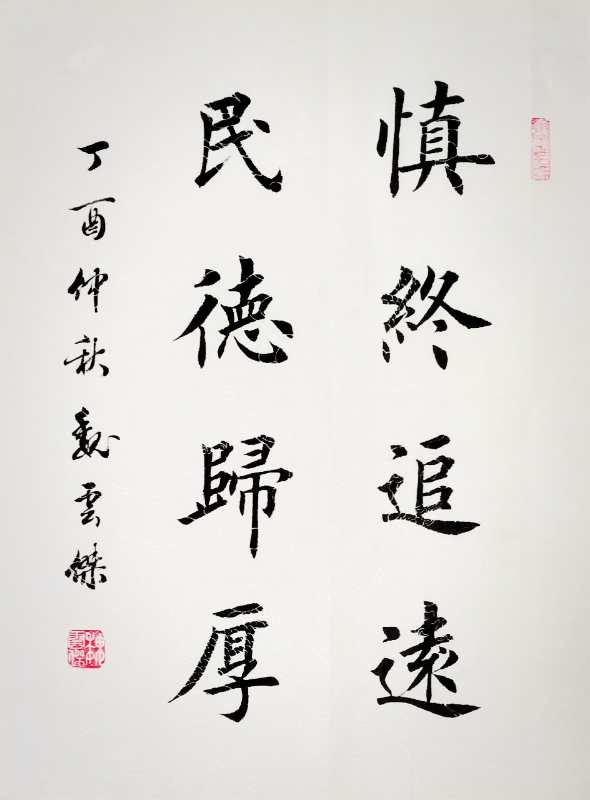 慎終追遠
民德歸厚
丁酉仲秋魏雲傑